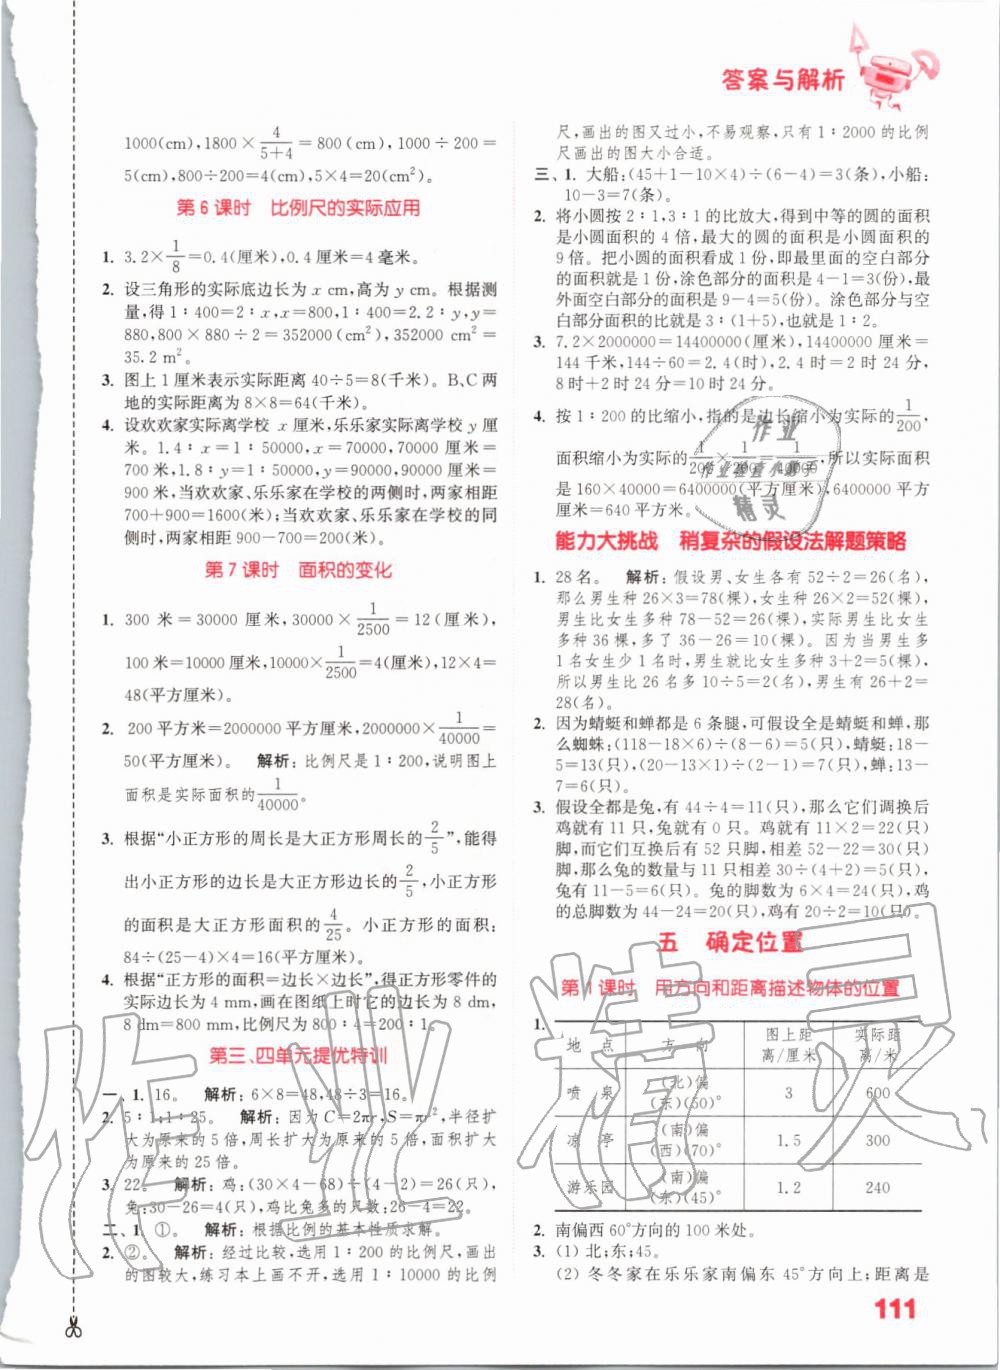 答案与解析
1000(cm),1800×4/5+4=800(cm),1000÷200=
5(cm),800÷200=4(cm),5×4=20(cm²)。
第6课时 比例尺的实际应用
1. 3.2×1/8=0.4(厘米),0.4厘米=4毫米。
2. 设三角形的实际底边长为x cm,高为y cm。根据测
量,得1∶400=2∶x,x=800,1∶400=2.2∶y,y=
880,800×880÷2=352000(cm²),352000 cm²=
35.2 m²。
3. 图上1厘米表示实际距离40÷5=8(千米)。B、C两
地的实际距离为8×8=64(千米)。
4. 设欢欢家实际离学校x厘米,乐乐家实际离学校y厘
米。1.4∶x=1∶50000,x=70000,70000厘米=
700米,1.8∶y=1∶50000,y=90000,90000厘米=
900米,当欢欢家、乐乐家在学校的两侧时,两家相距
700+900=1600(米);当欢欢家、乐乐家在学校的同
侧时,两家相距900-700=200(米)。
第7课时 面积的变化
1. 300米=30000厘米,30000×1/2500=12(厘米),
100米=10000厘米,10000×1/2500=4(厘米),12×4=
48(平方厘米)。
2. 200平方米=2000000平方厘米,2000000×1/40000=
50(平方厘米)。 解析:比例尺是1∶200,说明图上
面积是实际面积的1/40000。
3. 根据“小正方形的周长是大正方形周长的2/5”,能得
出小正方形的边长是大正方形边长的2/5,小正方形
的面积是大正方形面积的4/25。小正方形的面积:
84÷(25-4)×4=16(平方厘米)。
4. 根据“正方形的面积=边长×边长”,得正方形零件的
实际边长为4 mm,画在图纸上时它的边长为8 dm,
8 dm=800 mm,比例尺为800∶4=200∶1。
第三、四单元提优特训
一、1. 16。 解析:6×8=48,48÷3=16。
2. 5∶1;1∶25。 解析:因为C=2πr,S=πr²,半径扩
大为原来的5倍,周长扩大为原来的5倍,面积扩大
为原来的25倍。
3. 22。 解析:鸡:(30×4-68)÷(4-2)=26(只),
兔:30-26=4(只),鸡比兔多的只数:26-4=22。
二、1. ①。 解析:根据比例的基本性质求解。
2. ②。 解析:经过比较,选用1∶200的比例尺,画出
的图较大,练习本上画不开,选用1∶10000的比例
尺,画出的图又过小,不易观察,只有1∶2000的比例
尺画出的图大小合适。
三、1. 大船:(45+1-10×4)÷(6-4)=3(条),小船:
10-3=7(条)。
2. 将小圆按2∶1,3∶1的比放大,得到中等的圆的面积
是小圆面积的4倍,最大的圆的面积是小圆面积的
9倍。把小圆的面积看成1份,即最里面的空白部分
的面积就是1份,涂色部分的面积是4-1=3(份),最
外面空白部分的面积是9-4=5(份)。涂色部分与空
白部分面积的比就是3∶(1+5),也就是1∶2。
3. 7.2×2000000=14400000(厘米),14400000厘米=
144千米,144÷60=2.4(时),2.4时=2时24分,
8时+2时24分=10时24分。
4. 按1∶200的比缩小,指的是边长缩小为实际的1/200,
面积缩小为实际的1/200×1/200=1/40000,所以实际面积
是160×40000=6400000(平方厘米),6400000平方
厘米=640平方米。
能力大挑战 稍复杂的假设法解题策略
1. 28名。 解析:假设男、女生各有52÷2=26(名),
那么男生种26×3=78(棵),女生种26×2=52(棵),
男生比女生多种78-52=26(棵),实际男生比女生
多种36棵,多了36-26=10(棵)。因为当男生多
1名女生少1名时,男生就比女生多种3+2=5(棵),
所以男生比26名多10÷5=2(名),男生有26+2=
28(名)。
2. 因为蜻蜓和蝉都是6条腿,可假设全是蜻蜓和蝉,那
么蜘蛛:(118-18×6)÷(8-6)=5(只),蜻蜓:18-
5=13(只),(20-13×1)÷(2-1)=7(只),蝉:13-
7=6(只)。
3. 假设全都是兔,有44÷4=11(只),那么它们调换后
鸡就有11只,兔就有0只。鸡就有11×2=22(只)
脚,而它们互换后有52只脚,相差52-22=30(只)
脚,那么兔的数量与11只相差30÷(4+2)=5(只),
兔有11-5=6(只)。兔的脚数为6×4=24(只),鸡
的总脚数为44-24=20(只),鸡有20÷2=10(只)。
五 确定位置
第1课时 用方向和距离描述物体的位置
1.
地 点 方 向 图上距离/厘米 实际距离/米
喷 泉 (北)偏(东)(50)° 3 600
凉 亭 (南)偏(西)(70)° 1.5 300
游乐园 (南)偏(东)(45)° 1.2 240
2. 南偏西60°方向的100米处。
3. (1) 北;东;45。
(2) 冬冬家在乐乐家南偏东45°方向上;距离是
111
作业
作业检查小助手
精灵
作业精灵